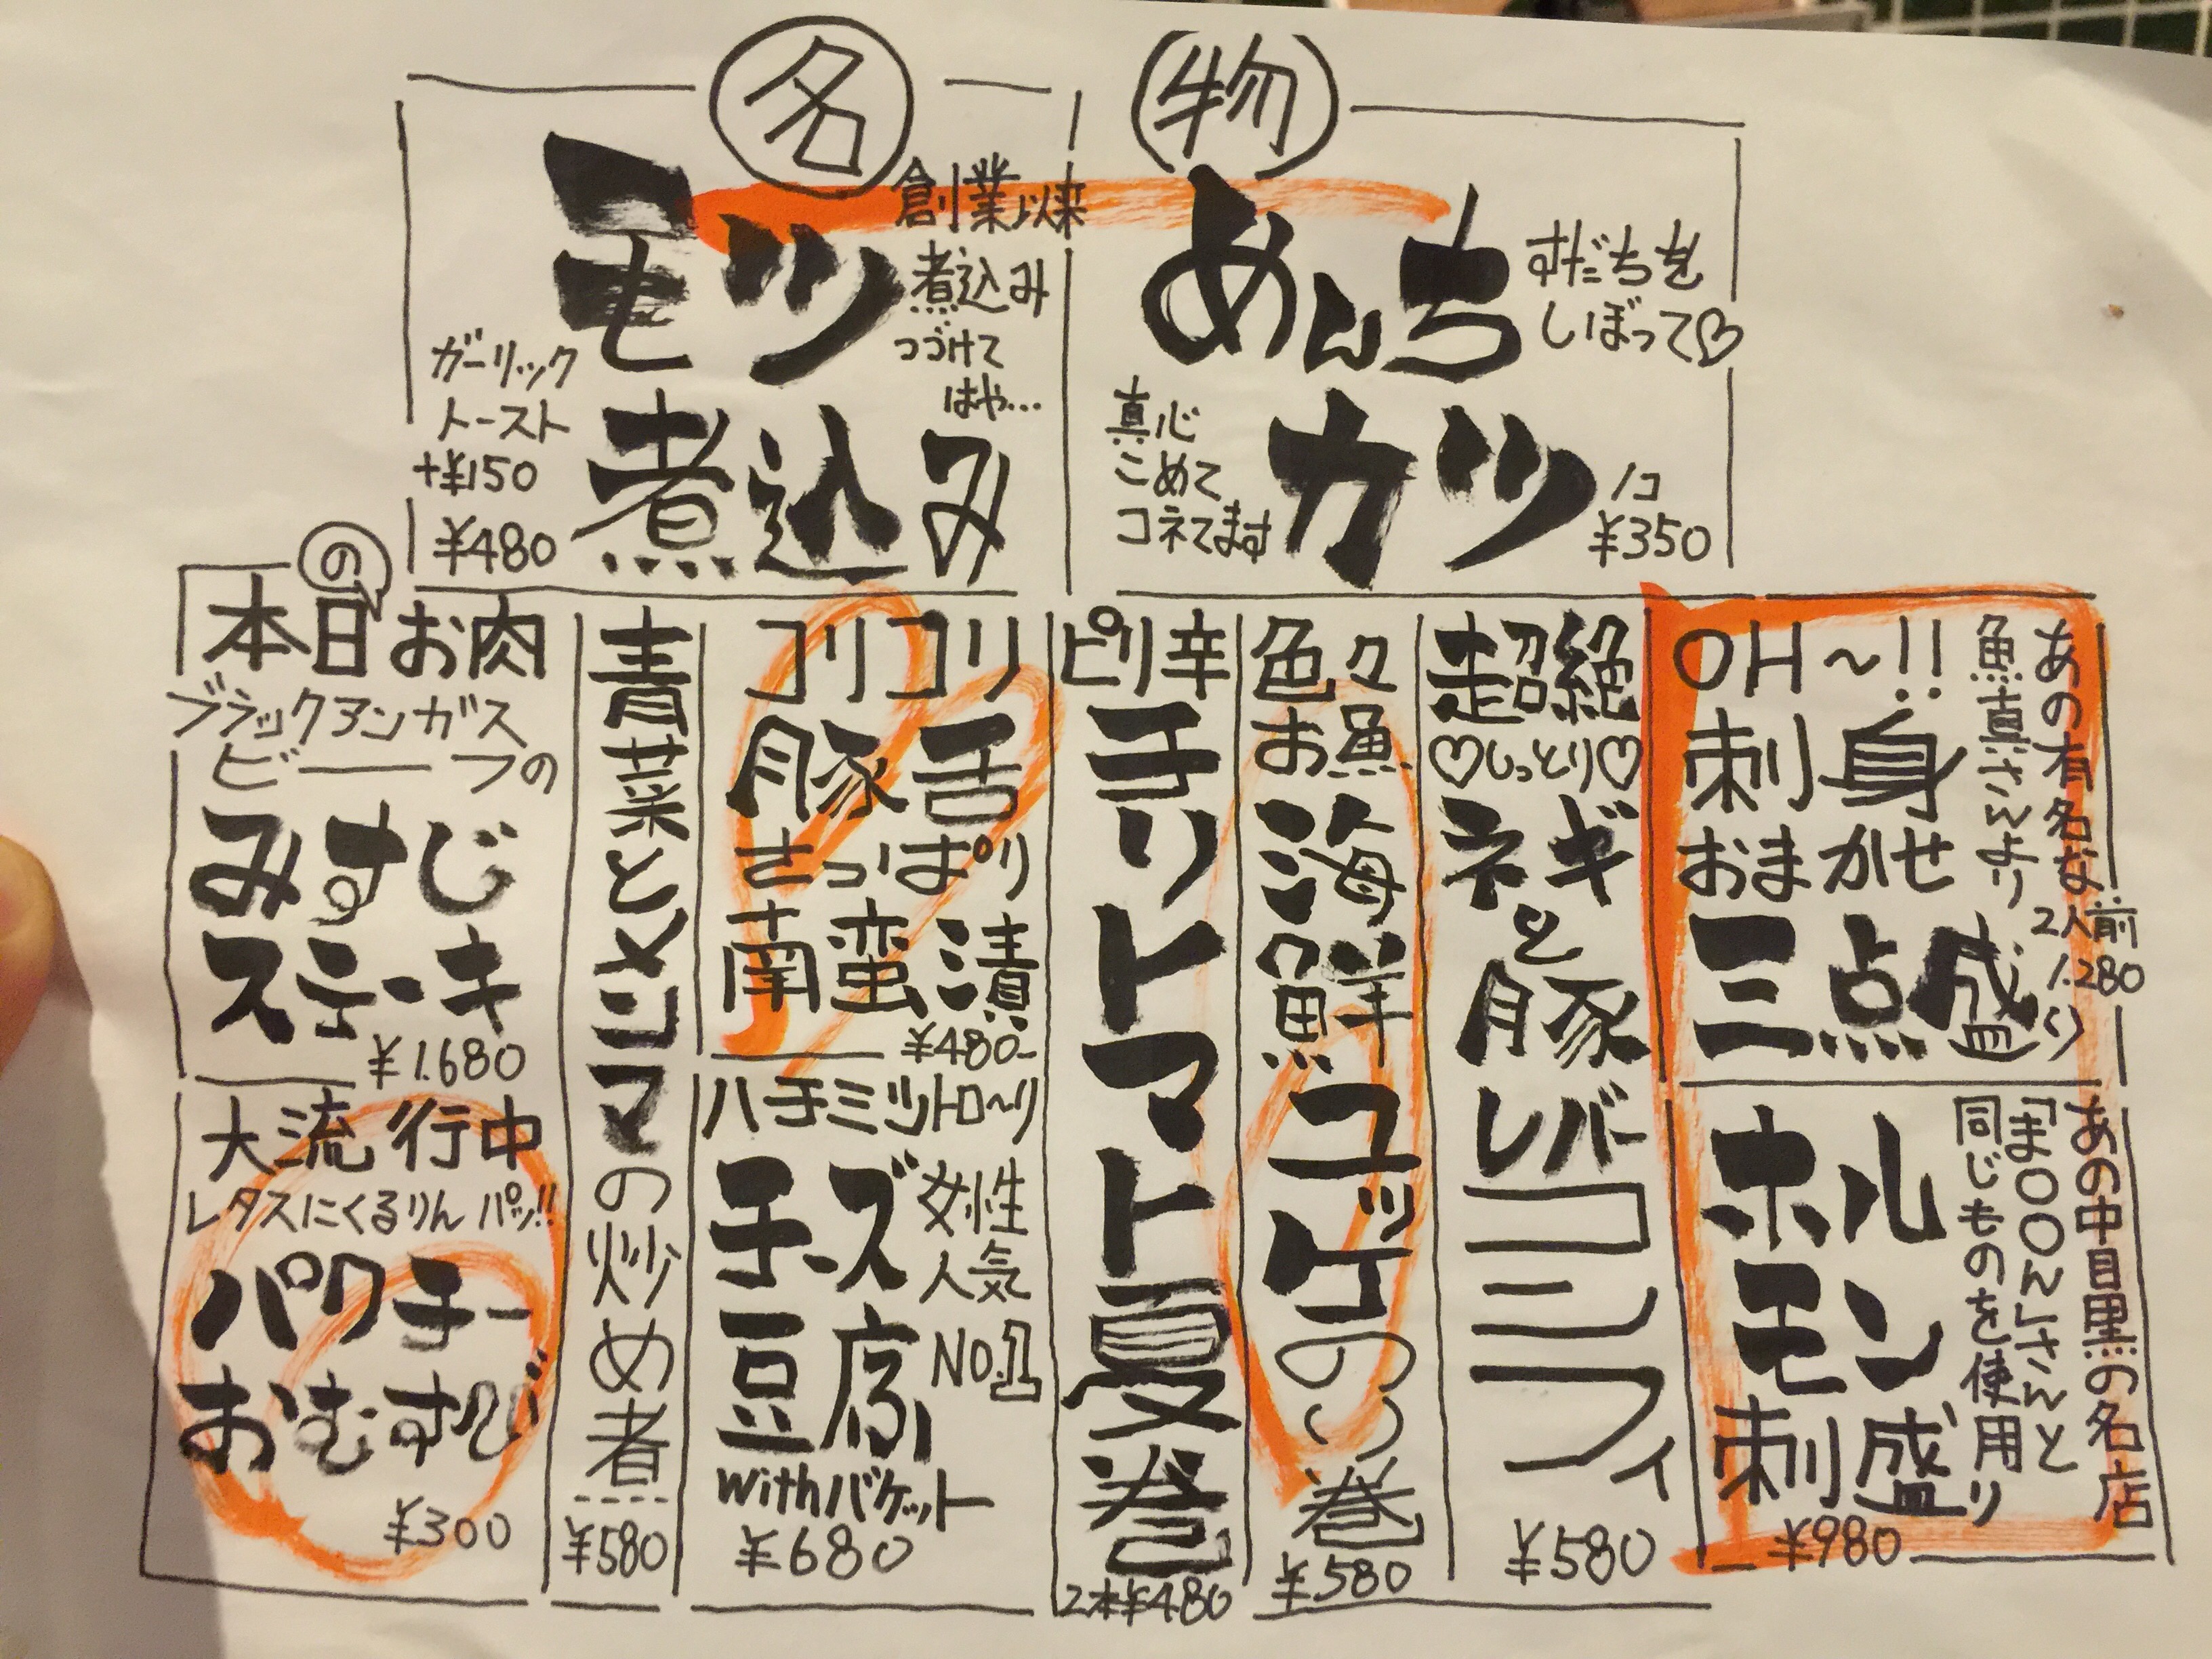 名物
めんち
カツ
すだちを
しぼって♡
真心
こめて
コネてます
1コ
¥350
モツ
煮込み
創業以来
煮込み
つづけて
はや…
ガーリック
トースト
+¥150
¥480
OH～!!
刺身
おまかせ
三点盛り
あの有名な
魚真さんより
2人前
1.280
ホル
モン
刺盛
あの中目黒の名店
「ま〇〇ん」さんと
同じものを使用り
¥980
超絶
♡しっとり♡
ネギ
と
豚
レバー
コンフィ
¥580
色々
お魚
海鮮ユッケのり巻
¥580
ピリ辛
チリトマト夏巻
2本¥480
コリコリ
豚舌
さっぱり
南蛮漬
¥480-
ハチミツトロ～リ
チーズ
豆腐
女性
人気
NO.1
withバケット
¥680
青菜とメンマの炒め煮
¥580
本日のお肉
ブラックアンガス
ビーフの
みすじ
ステーキ
¥1.680
大流行中
レタスにくるりんパッ!!
パクチー
おむすび
¥300